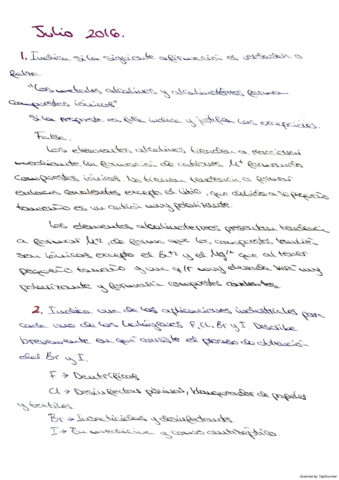 Julio 2016.
1. Indica si la siguiente afirmación es verdadera o
falsa.
"Los metales alcalinos y alcalinotérreos forman
compuestos iónicos"
Si la respuesta es falsa indica y justifica las excepciones.
Falso.
Los elementos alcalinos tienden a reaccionar
mediante la formación de cationes M+ formando
compuestos iónicos. No tienen tendencia a formar
enlaces covalentes excepto el litio, que debido a su pequeño
tamaño es un catión muy polarizante.
Los elementos alcalinoterreos presentan tendencia
a formar M+2, de forma que los compuestos también
son iónicos excepto el Be+2 y el Mg+2 que al tener
pequeño tamaño y una q/r muy elevada son muy
polarizante y formarán compuestos covalentes.
2. Indica una de las aplicaciones industriales para
cada uno de los halógenos F, Cl, Br y I. Describe
brevemente en qué consiste el proceso de obtención
del Br y I.
F → Dentríficos
Cl → Desinfectar piscinas, blanqueador de papeles
y textiles.
Br → Insecticidas y desinfectante
I → En medicina y como antiséptico.
Scanned by TapScanner